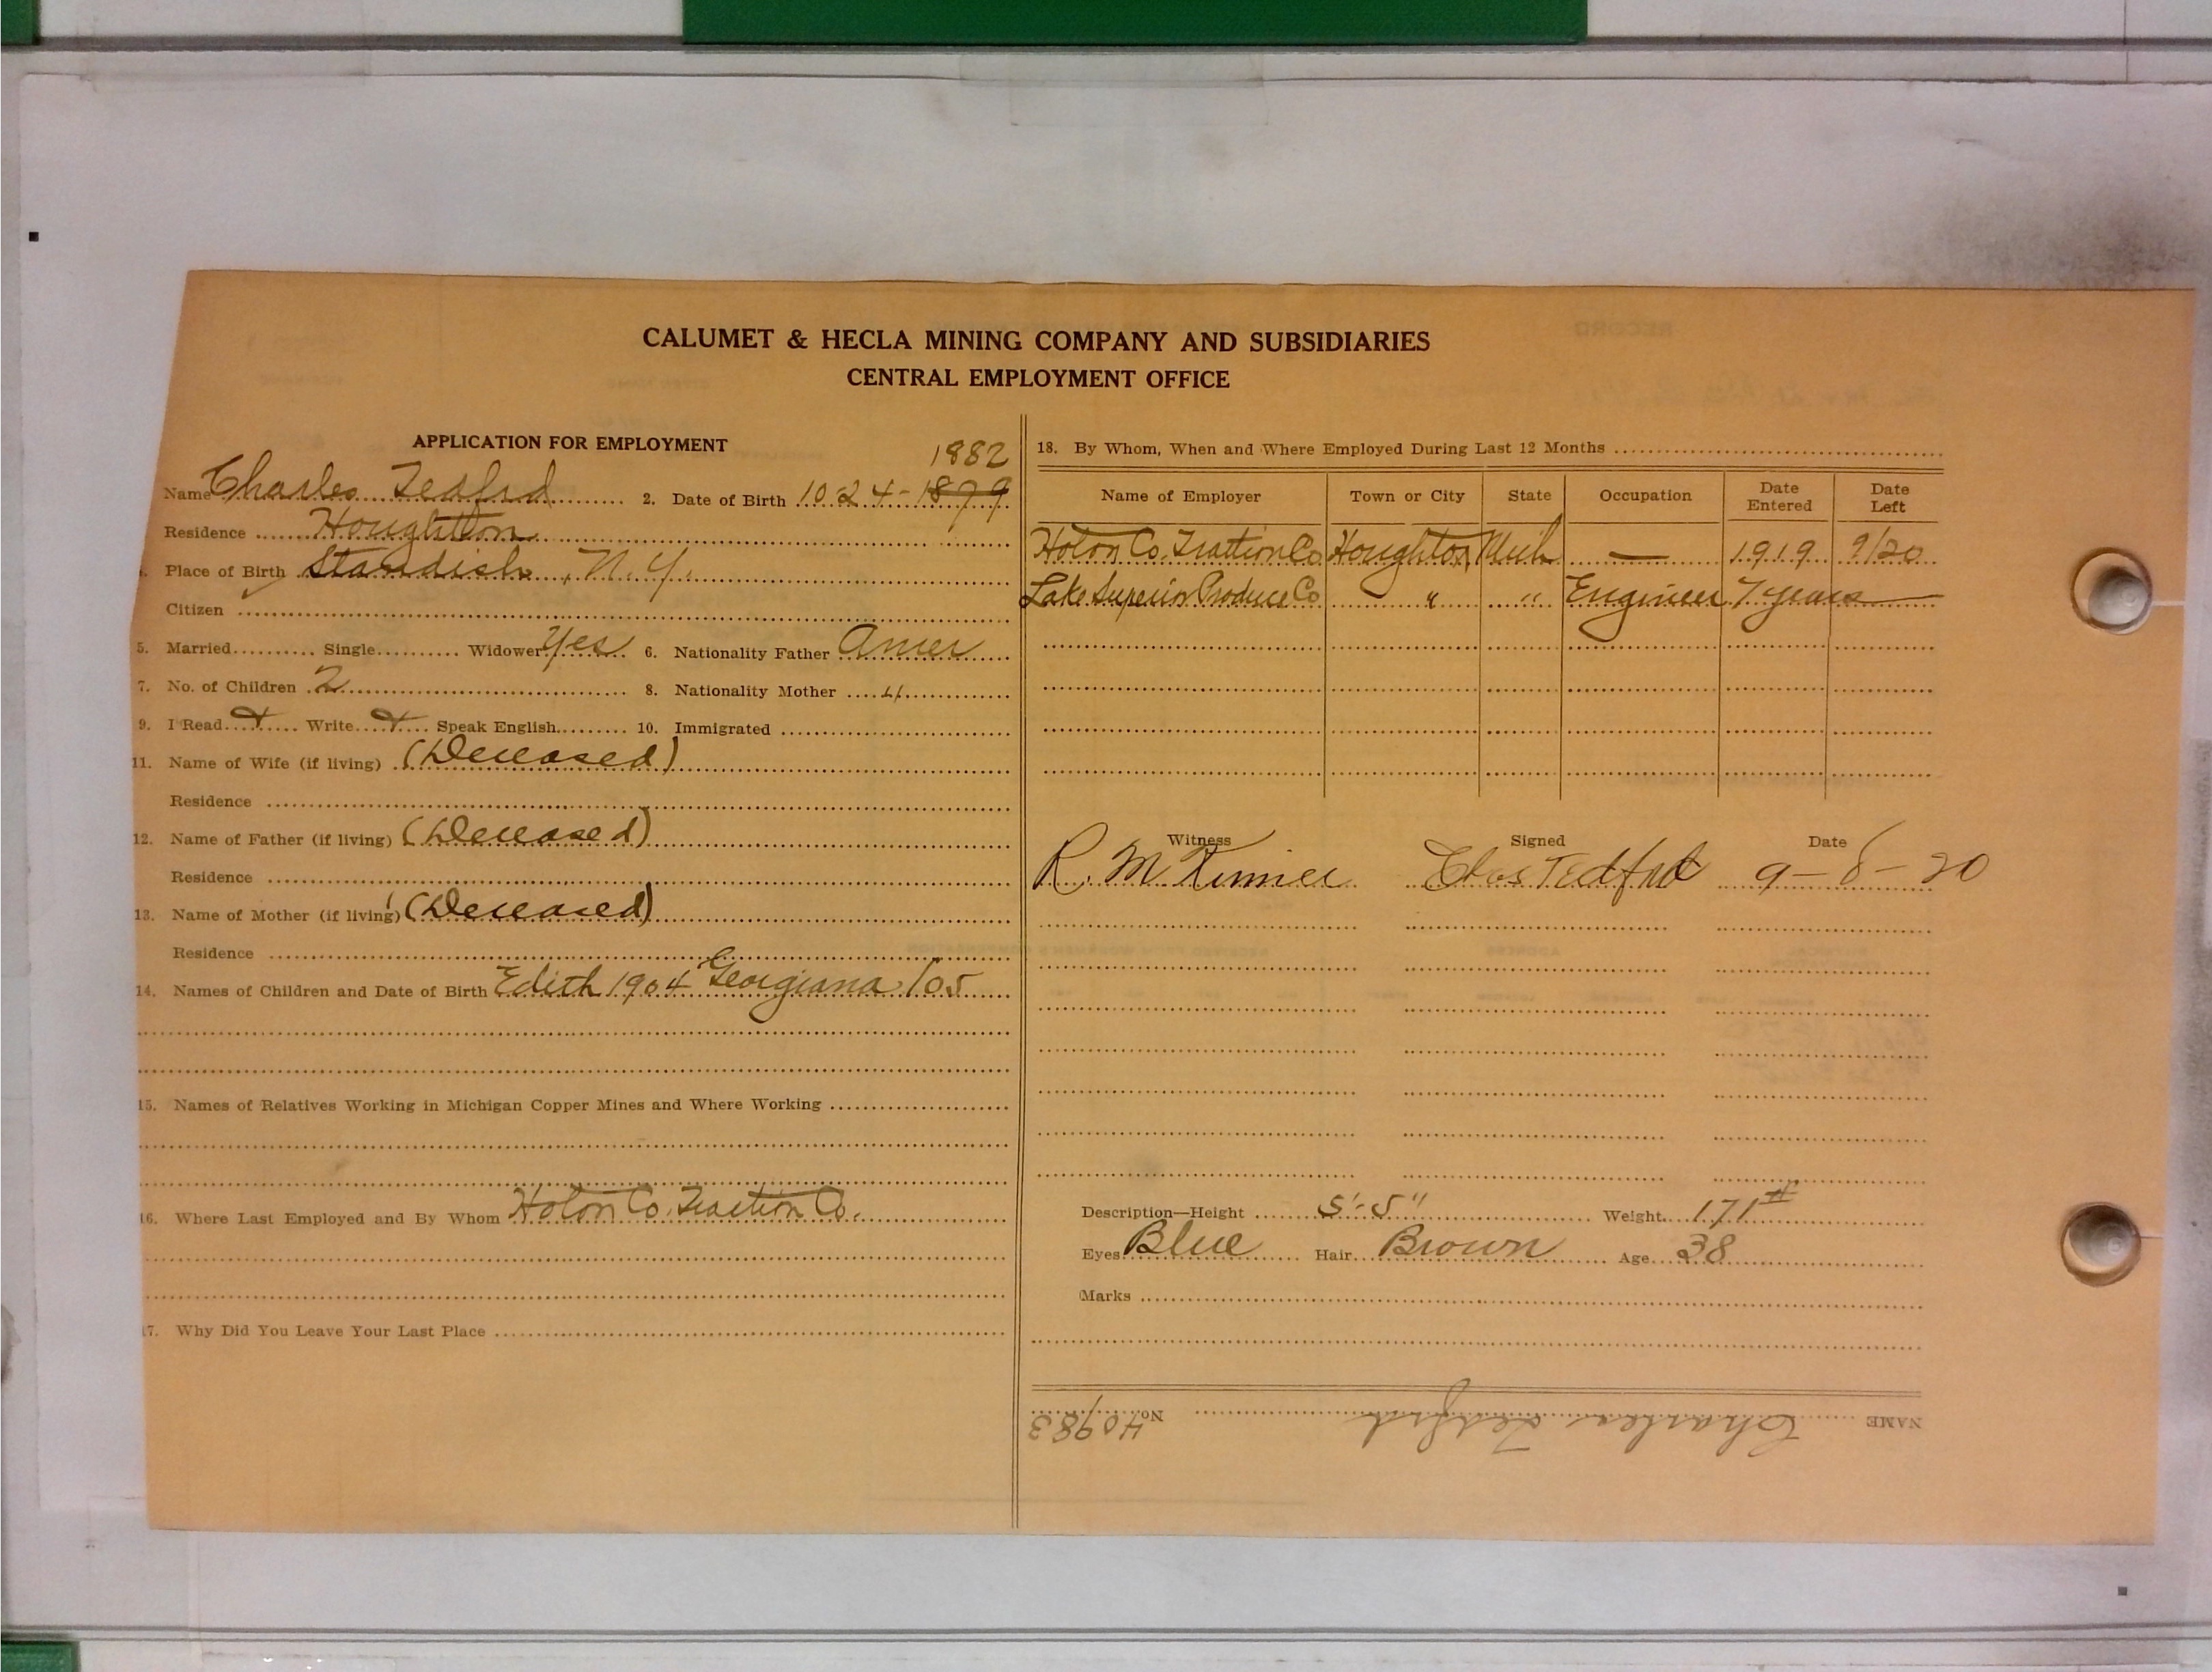 CALUMET & HECLA MINING COMPANY AND SUBSIDIARIES
CENTRAL EMPLOYMENT OFFICE
APPLICATION FOR EMPLOYMENT
1882
Name Charles Tedford 2. Date of Birth 10-24-1879
Residence Houghton
Place of Birth Standish, N.Y.
Citizen
5. Married Single Widower Yes 6. Nationality Father Amer
7. No. of Children 2 8. Nationality Mother "
9. I Read Write Speak English 10. Immigrated
11. Name of Wife (if living) (Deceased)
Residence
12. Name of Father (if living) (Deceased)
Residence
13. Name of Mother (if living) (Deceased)
Residence
14. Names of Children and Date of Birth Edith 1904 Georgiana /05
15. Names of Relatives Working in Michigan Copper Mines and Where Working
16. Where Last Employed and By Whom Hoton Co. Traction Co.
17. Why Did You Leave Your Last Place
18. By Whom, When and Where Employed During Last 12 Months
Name of Employer Town or City State Occupation Date Entered Date Left
Hoton Co. Traction Co Houghton Mich — 1919 9/20
Lake Superior Produce Co " " Engineer 7 years
Witness Signed Date
R. M Chas Tedford 9-8-20
Description—Height 5'-5" Weight 171#
Eyes Blue Hair Brown Age 38
Marks
NAME Charles Tedford No. 40983